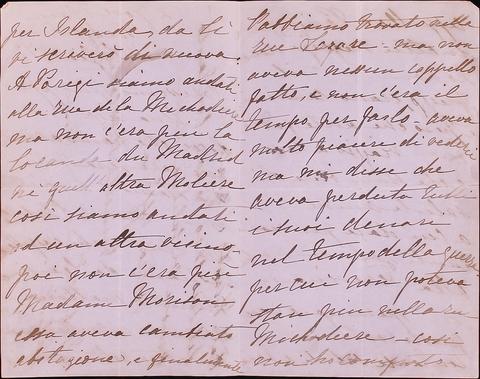 per Islanda, da lì
vi scriverò di nuova.
A Parigi siamo andati
alla Rue de la Michodiere
ma non c'era più la
locanda du Madrid
nè quell'altra Moliere
così siamo andati
ad un altra vicino,
poi non c'era più
Madame Morison
essa aveva cambiato
abitazione, e finalmente
l'abbiamo trovato nella
rue - ma non
aveva nessun cappello
fatto, e non c'era il
tempo per farlo - aveva
molto piacere di vederci
ma mi disse che
aveva perduto tutti
i suoi denari
nel tempo della guerra
per cui non poteva
stare più nella rue
Michodiere - così
non ho comprato